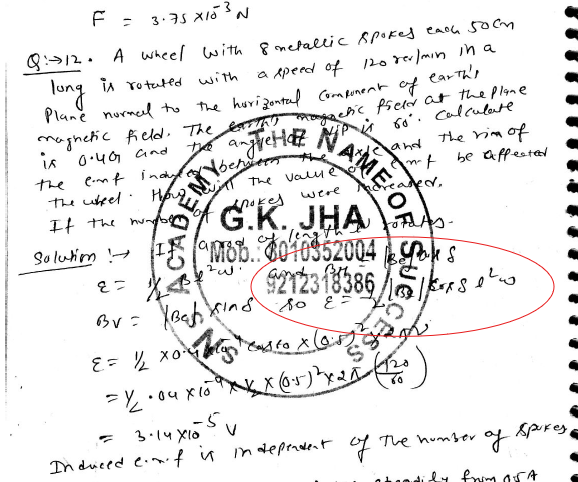 F = 3.75×10⁻³ N
Q:→12. A wheel with 8 metallic spokes each 50cm
long is rotated with a speed of 120 rev/min in a
plane normal to the horizontal component of earth's
magnetic field. The earth's magnetic field at the plane
is 0.4G and the angle of dip is 60°. Calculate
the e.m.f induced between the axle and the rim of
the wheel. How will the value of e.m.f be affected
If the number of spokes were increased.
Solution !→ If a rod of length l rotates.
ε = 1/2 Bl²ω. and BH = |Be| cos δ
BV = |Be| sin δ so ε = 1/2 |Be| cos δ l²ω
ε = 1/2 × 0.4 × 10⁻⁴ cos 60 × (0.5)² × 2πν
= 1/2 . 04 × 10⁻⁴ × 1/2 × (0.5)² × 2π (120/60)
= 3.14×10⁻⁵ V
Induced e.m.f is independent of the number of spokes
steadily from 0.5A
IN THE NAME OF SUCCESS
SNS ACADEMY
G.K. JHA
Mob.: 8010352004
9212318386